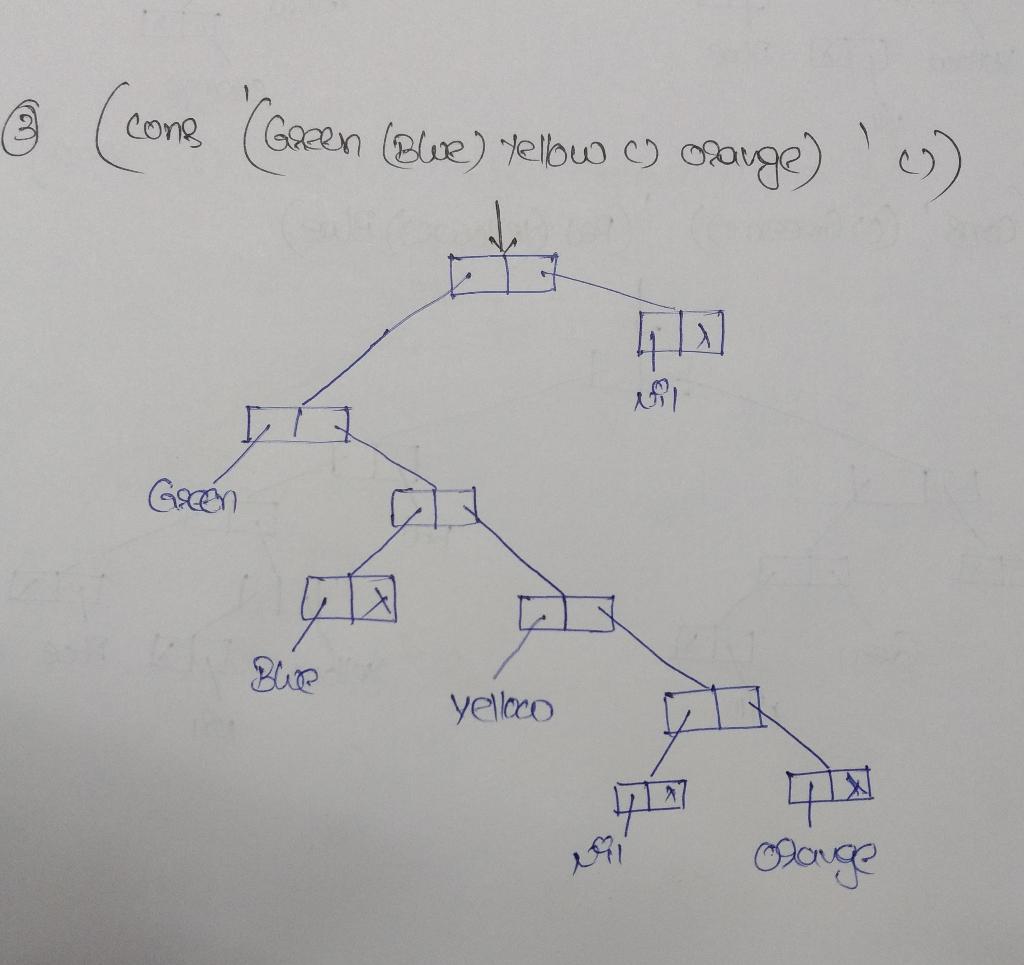 ③ (cons '(Green (Blue) Yellow () orange) '())
Nil
Green
Blue
Yellow
Nil
Orange